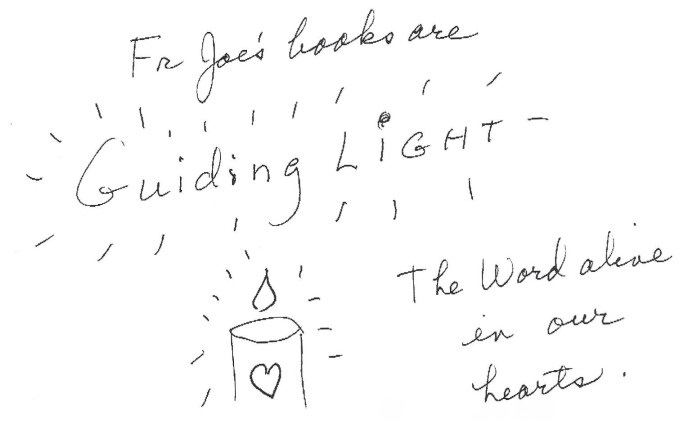 Fr Joe's books are
Guiding LiGHT -
The Word alive
in our
hearts.